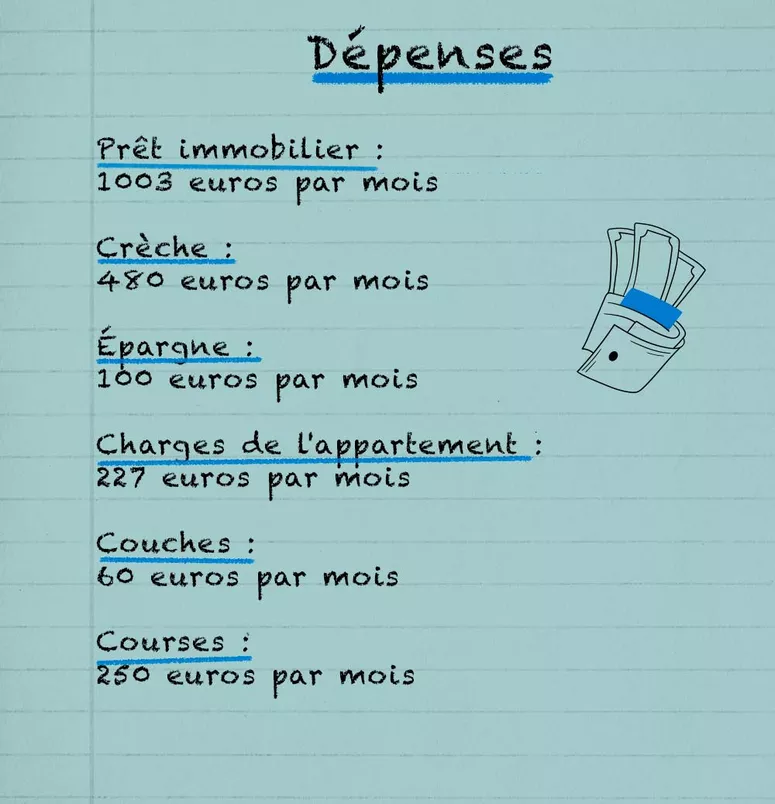 Dépenses
Prêt immobilier :
1003 euros par mois
Crèche :
480 euros par mois
Épargne :
100 euros par mois
Charges de l'appartement :
227 euros par mois
Couches :
60 euros par mois
Courses :
250 euros par mois